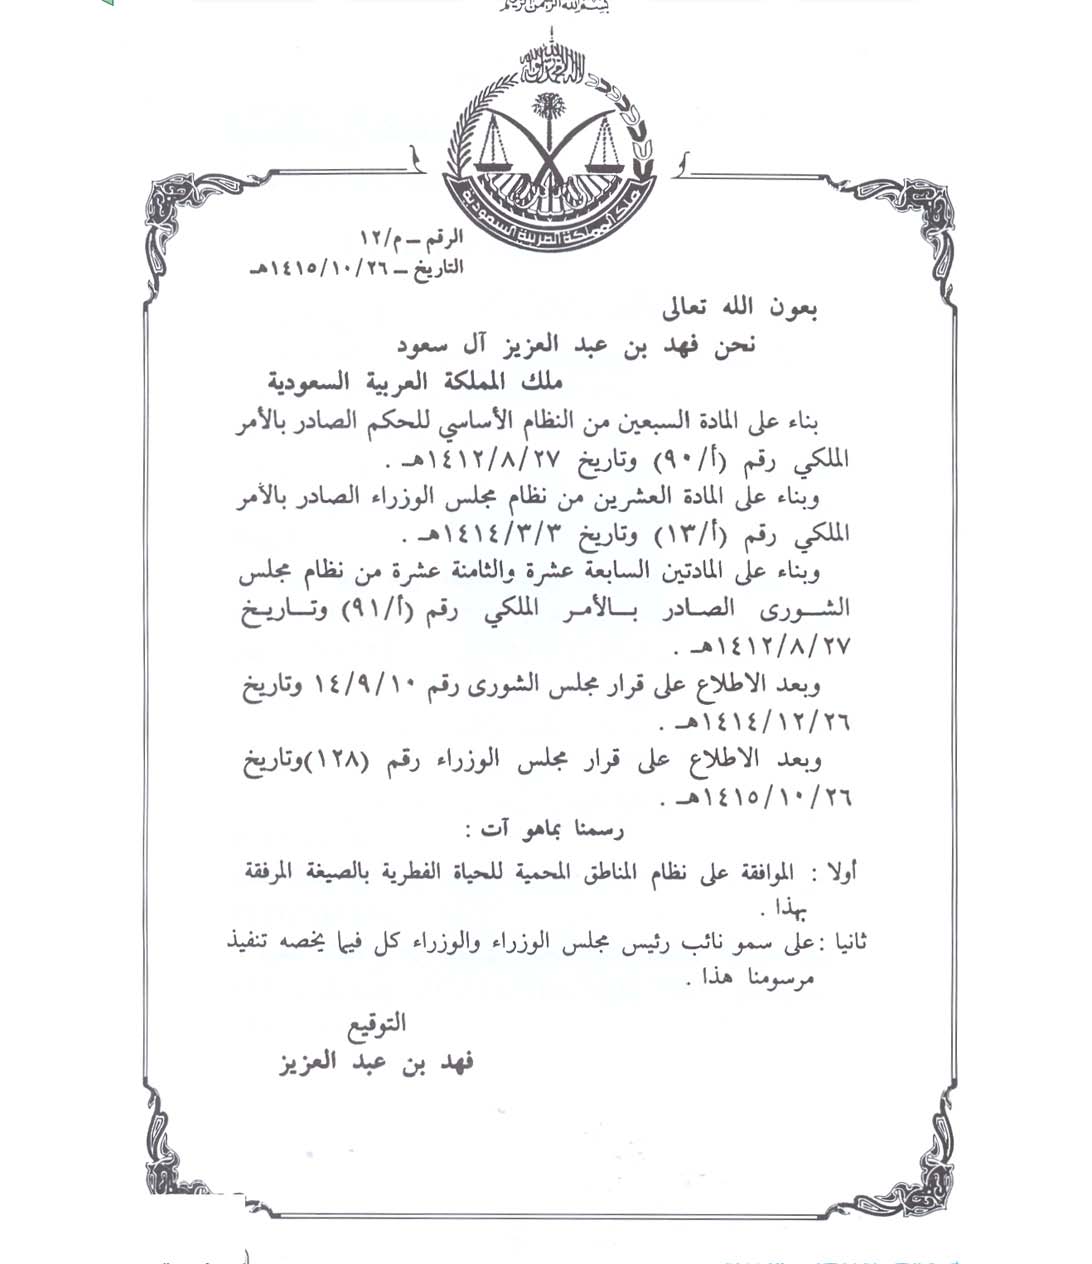 بسم الله الرحمن الرحيم
لا إله إلا الله محمد رسول الله
ملك المملكة العربية السعودية
الرقم ــ م/١٢
التاريخ ــ ١٤١٥/١٠/٢٦هـ
بعون الله تعالى
نحن فهد بن عبد العزيز آل سعود
ملك المملكة العربية السعودية
بناء على المادة السبعين من النظام الأساسي للحكم الصادر بالأمر
الملكي رقم (أ/٩٠) وتاريخ ١٤١٢/٨/٢٧هـ .
وبناء على المادة العشرين من نظام مجلس الوزراء الصادر بالأمر
الملكي رقم (أ/١٣) وتاريخ ١٤١٤/٣/٣هـ .
وبناء على المادتين السابعة عشرة والثامنة عشرة من نظام مجلس
الشورى الصادر بالأمر الملكي رقم (أ/٩١) وتاريخ
١٤١٢/٨/٢٧هـ .
وبعد الاطلاع على قرار مجلس الشورى رقم ١٤/٩/١٠ وتاريخ
١٤١٤/١٢/٢٦هـ .
وبعد الاطلاع على قرار مجلس الوزراء رقم (١٢٨)وتاريخ
١٤١٥/١٠/٢٦هـ .
رسمنا بماهو آت :
أولا : الموافقة على نظام المناطق المحمية للحياة الفطرية بالصيغة المرفقة
بهذا .
ثانيا :على سمو نائب رئيس مجلس الوزراء والوزراء كل فيما يخصه تنفيذ
مرسومنا هذا .
التوقيع
فهد بن عبد العزيز